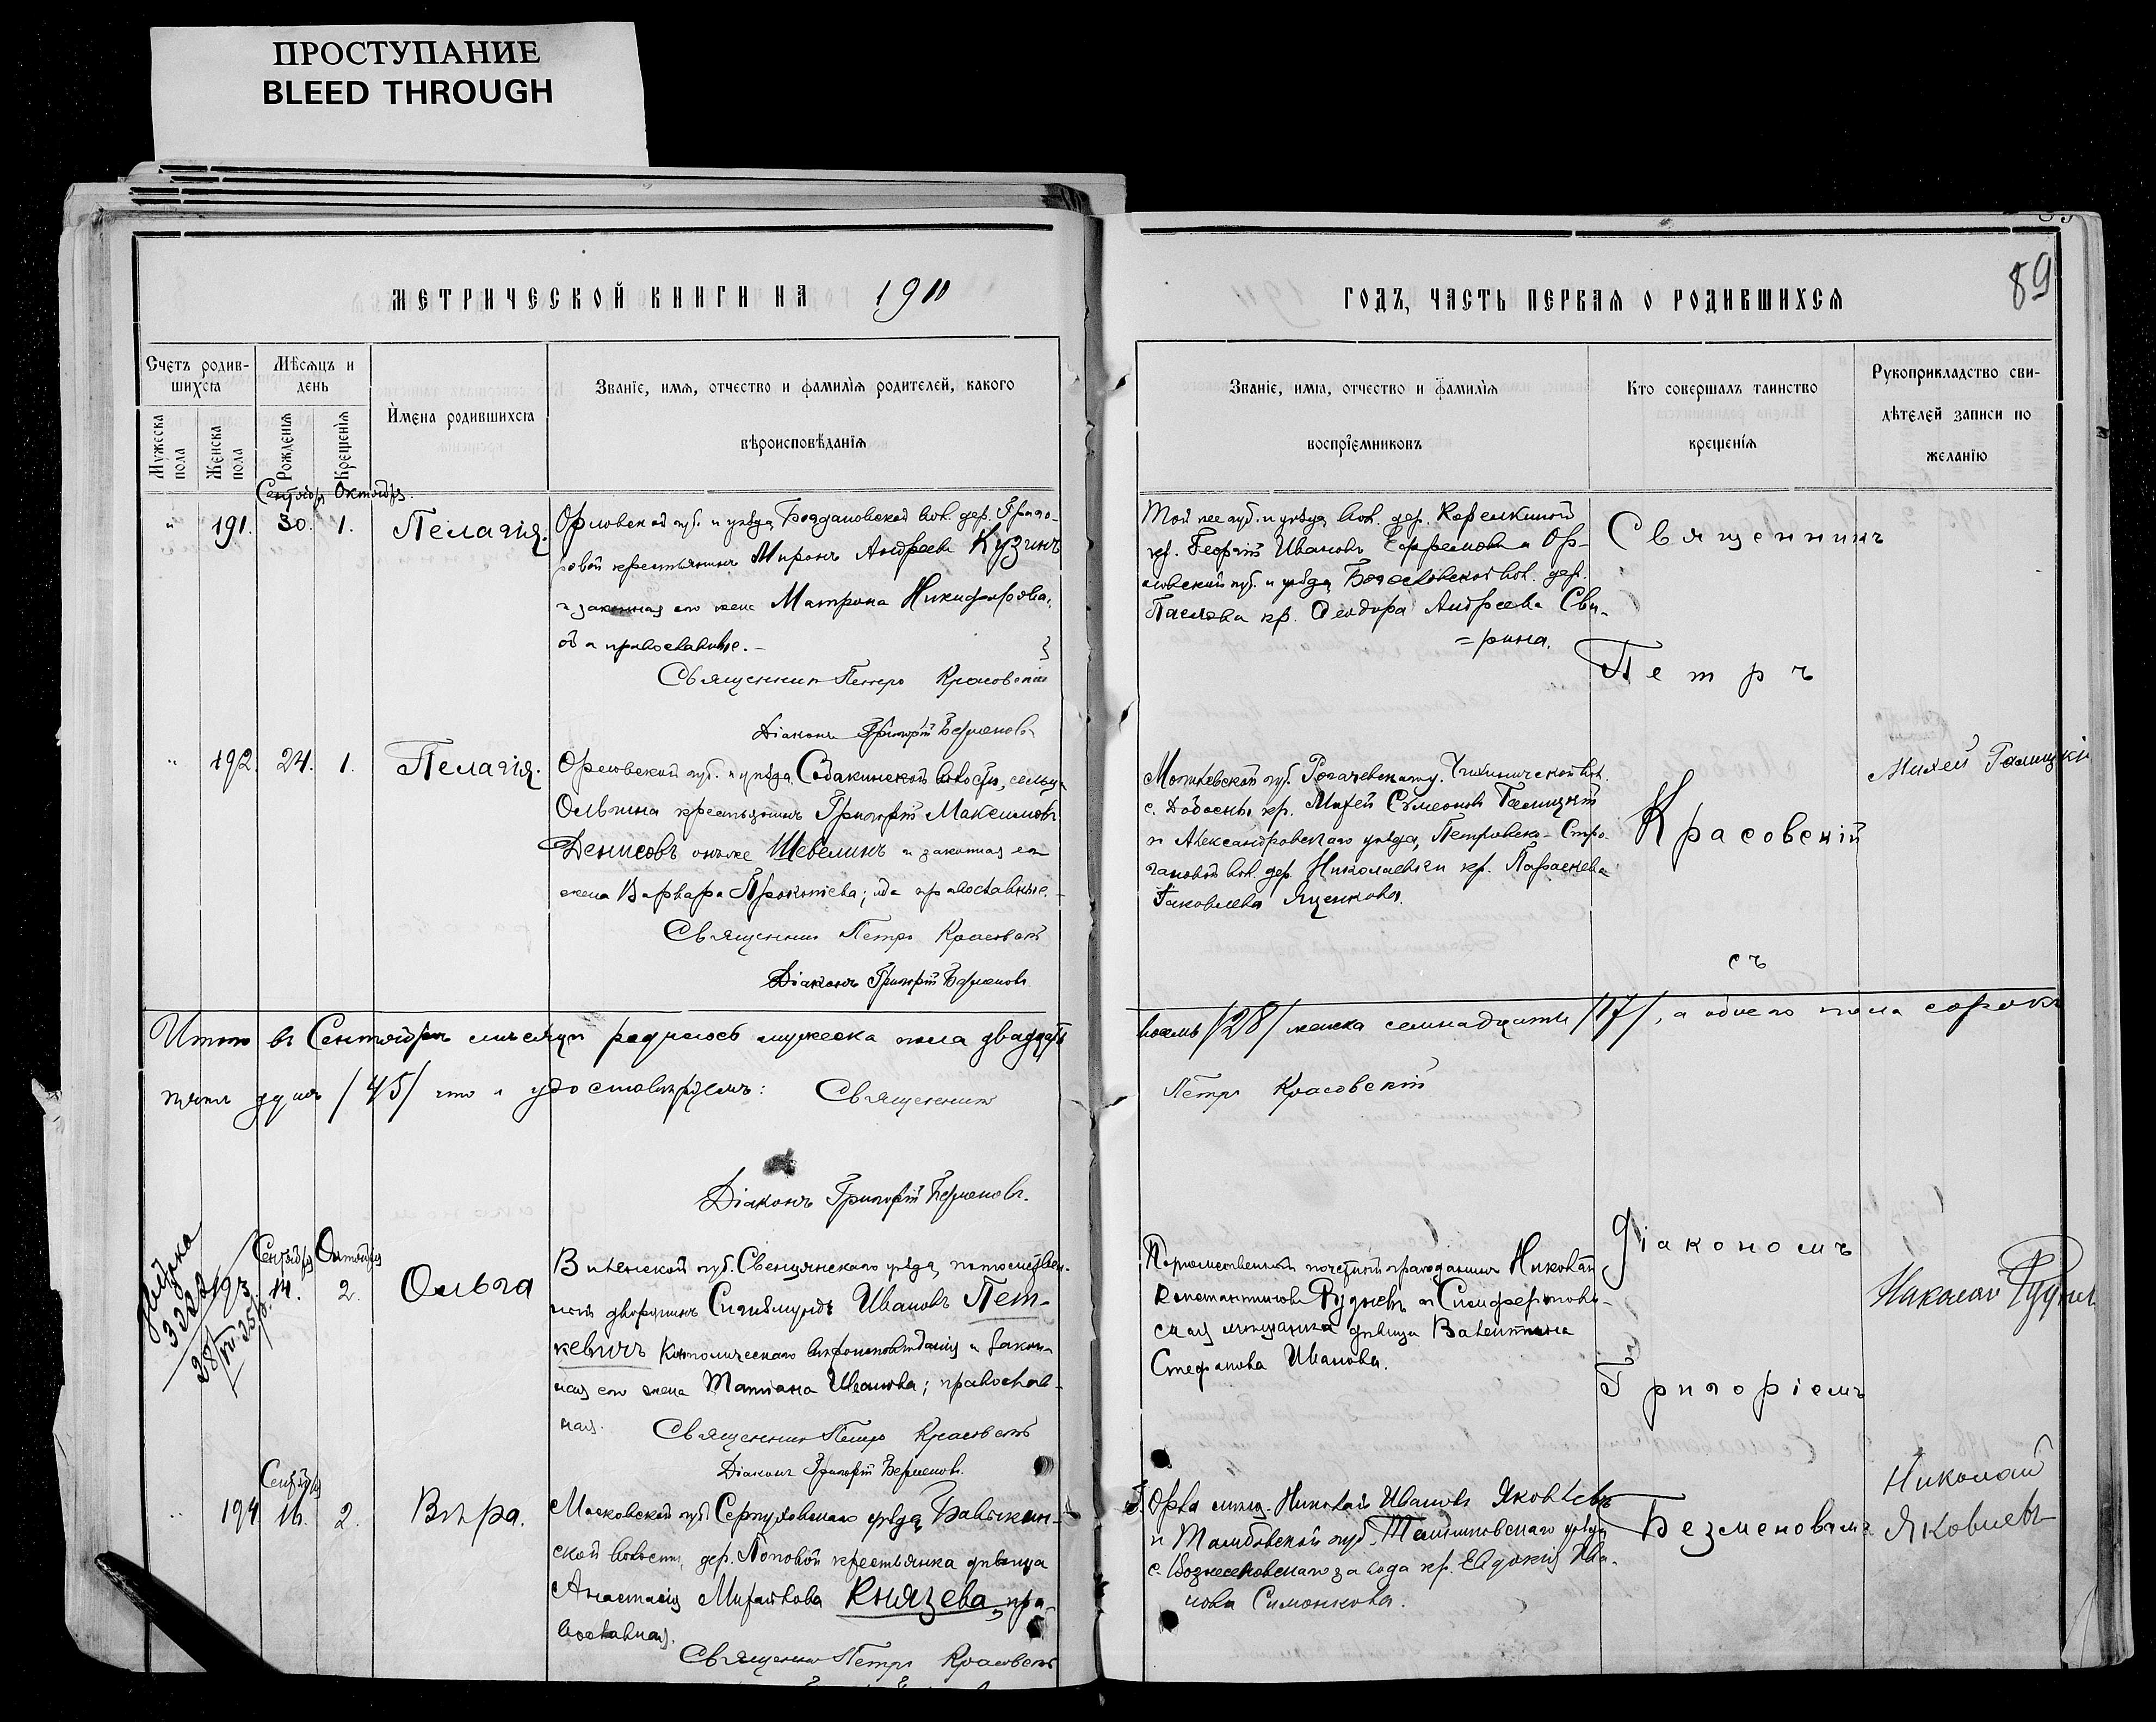 ПРОСТУПАНИЕ
BLEED THROUGH
МЕТРИЧЕСКОЙ КНИГИ НА 1911
Счетъ родив-
шихся
Мѣсяцъ и
день
Мужеска
пола
Женска
пола
Рожденія
Крещенія
Имена родившихся
Званіе, имя, отчество и фамилія родителей, какого
вѣроисповѣданія
Сентябрь Октябрь.
" 191. 30. 1. Пелагія.
Орловской губ. и уѣзда Богдановской вол. дер.
крестьянинъ Миронъ Андреевъ Кузинъ
и законная его жена Матрона Никифорова,
оба православные.
Священникъ Петръ Красовскій
Діаконъ Григорій Безменовъ
" 192. 24. 1. Пелагія.
Орловской губ. и уѣзда волости, сельца
крестьянинъ Григорій Максимовъ
Денисовъ онъ же Шевелинъ и законная его
жена Варвара Прокопіева; оба православные.
Священникъ Петръ Красовскій
Діаконъ Григорій Безменовъ
Итого въ Сентябрѣ мѣсяцѣ родилось мужеска пола двадцать
пять душъ /45/ что и удостовѣряемъ: Священникъ
Діаконъ Григорій Безменовъ.
193
Сентября Октября
14. 2. Ольга
Виленской губ. Свенцянскаго уѣзда, потомствен-
ный дворянинъ Сигизмундъ Ивановъ Пет-
кевичъ католическаго вѣроисповѣданія и закон-
ная его жена Татіана Иванова; православ-
ная.
Священникъ Петръ Красовскій
Діаконъ Григорій Безменовъ.
Сентября
" 194 16. 2. Вѣра.
Московской губ. Серпуховскаго уѣзда,
ской волости, дер. Поповой крестьянка дѣвица
Анастасія Михайлова Князева, пра-
вославная.
Священникъ Петръ Красовскій
ГОДЪ, ЧАСТЬ ПЕРВАЯ О РОДИВШИХСЯ
89
Званіе, имя, отчество и фамилія
воспріемниковъ
Кто совершалъ таинство
крещенія
Рукоприкладство сви-
дѣтелей записи по
желанію
Той же губ. и уѣзда вол. дер.
кр. Георгій Ивановъ и Ор-
ловской губ. и уѣзда вол. дер.
кр. Ѳеодора Андреева Сви-
=рина.
Священникъ
Петръ
Красовскій
съ
Могилевской губ. Рогачевскаго у. вол.
кр. Михей Симеоновъ Галицкій
и Александровскаго уѣзда, Петровско-Стро-
гановой вол. дер. Николаевки кр. Параскева
Іаковлева Яценкова.
Михей Галицкій
восемь /28/ женска семнадцать /17/, а обоего пола сорокъ
Петръ Красовскій
діакономъ
Григоріемъ
Безменовымъ
почетный гражданинъ Николай
Константиновъ Рудневъ и Симферополь-
ская мѣщанка дѣвица Валентина
Стефанова Иванова.
Г. Орла мѣщ. Николай Ивановъ Яковлевъ
и Тамбовской губ. Темниковскаго уѣзда
с. Вознесеновскаго завода кр. Евдокія Ива-
нова Симонкова.
Николай
Яковлевъ